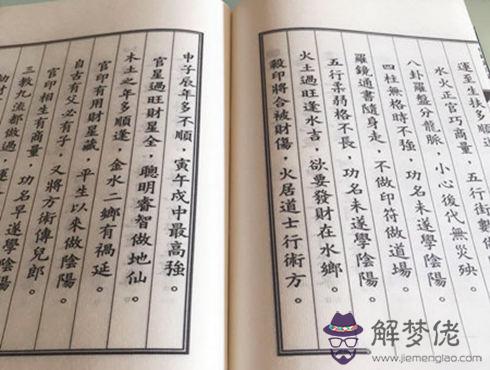 運至生扶多順
水火正官巧商量，五行
八卦羅盤分龍脈，小心後代無火殃。
四柱無格時不強，功名未遂學陰陽。
羅鏡通書隨身走，不做印符做道場。
五行柔弱格不長，功名未遂學陰陽。
火土過旺逢水吉，欲要發財在水鄉。
殺印將合被財傷，火居道士行術方。
申子辰年多不順，寅午戌中最高強。
官星過旺財星全，聰明睿智做地仙。
木土之年多順逢，金水二鄉有禍延。
官印有用財星藏，平生以來做陰陽。
自古有父必有子，又將方術傳兒郎。
官印相生有商量，功名早遂學陰陽
三教九流都做過，運
解梦佬
www.jiemenglao.com